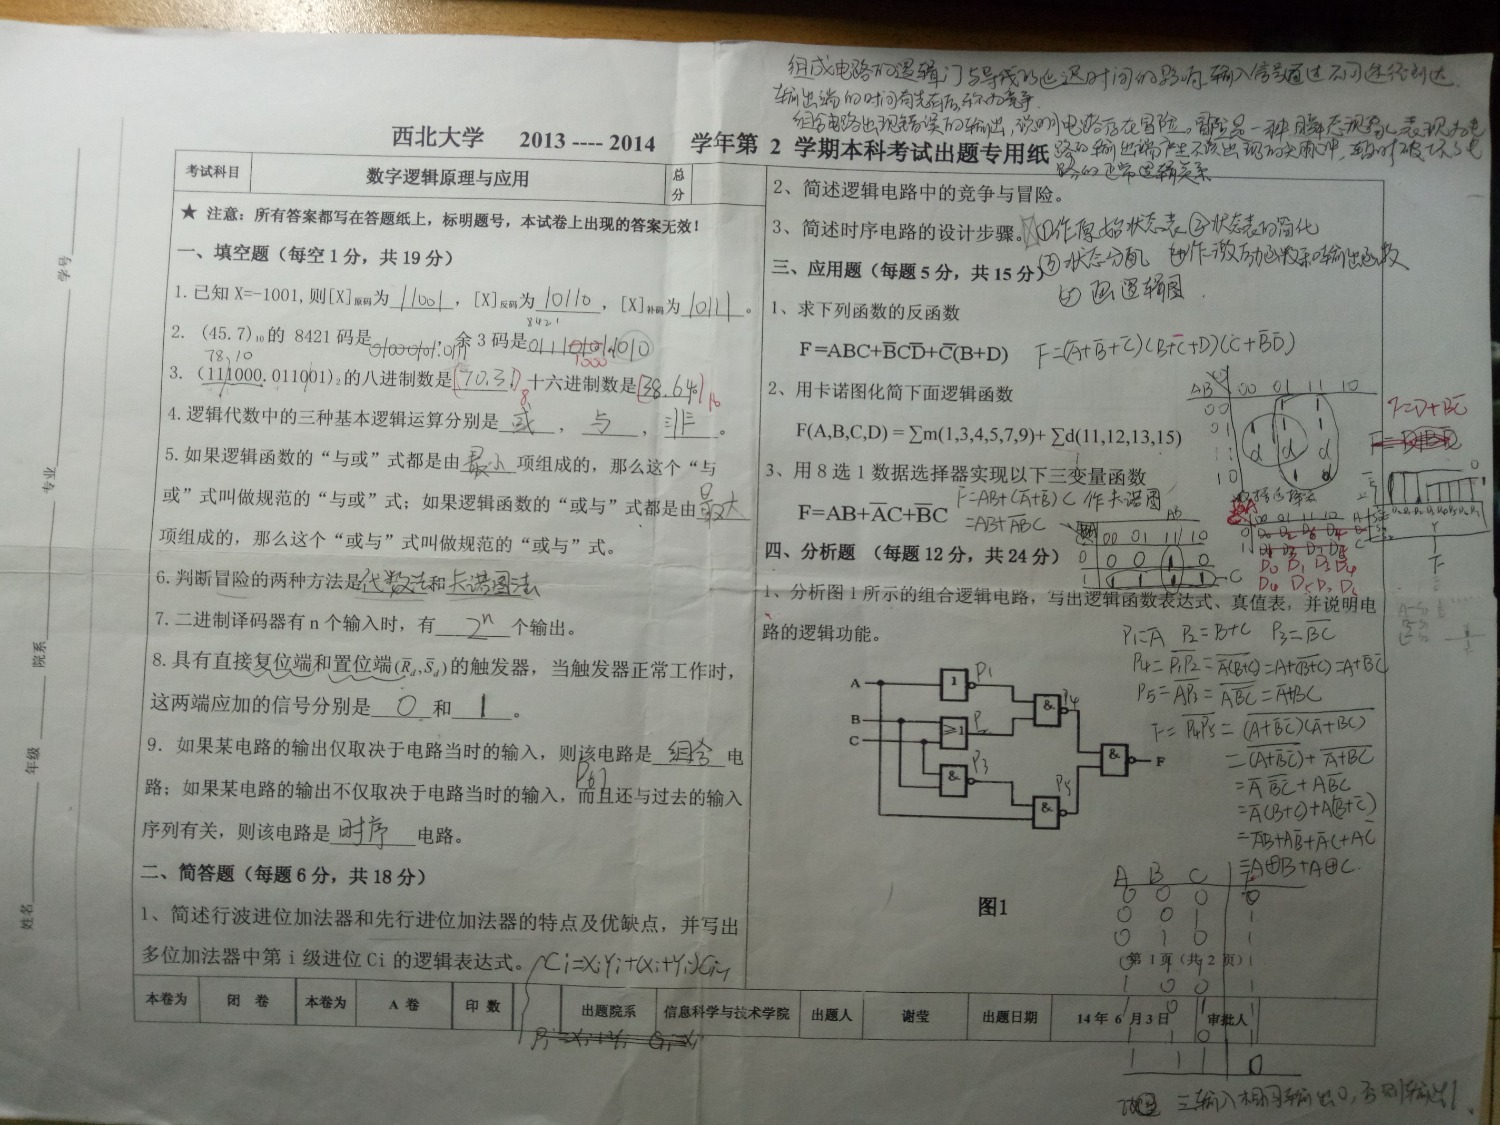 组成电路的逻辑门与导线的延迟时间的影响,输入信号通过不同途径到达
输出端的时间有先有后,称为竞争.
组合电路出现错误的输出,说明电路存在冒险。冒险是一种瞬态现象,表现为电
路的输出端产生不该出现的尖脉冲,暂时破坏了电
路的正常逻辑关系
西北大学 2013 ---- 2014 学年第 2 学期本科考试出题专用纸
考试科目 数字逻辑原理与应用 总分
★ 注意:所有答案都写在答题纸上,标明题号,本试卷上出现的答案无效!
一、填空题(每空1分,共19分)
1.已知X=-1001,则[X]原码为 11001 ,[X]反码为 10110 ,[X]补码为 10111 。
8421
2. (45.7)10的 8421 码是 01000101.0111 ,余3码是 0111 1000.1010
78.10
3. (111000.011001)2的八进制数是(70.31)8 十六进制数是(38.64)16
4.逻辑代数中的三种基本逻辑运算分别是 或 , 与 , 非 。
5.如果逻辑函数的“与或”式都是由 最小 项组成的,那么这个“与
或”式叫做规范的“与或”式;如果逻辑函数的“或与”式都是由 最大
项组成的,那么这个“或与”式叫做规范的“或与”式。
6.判断冒险的两种方法是 代数法 和 卡诺图法
7.二进制译码器有n个输入时,有 2ⁿ 个输出。
8.具有直接复位端和置位端(R̄d,S̄d)的触发器,当触发器正常工作时,
这两端应加的信号分别是 0 和 1 。
9. 如果某电路的输出仅取决于电路当时的输入,则该电路是 组合 电
路;如果某电路的输出不仅取决于电路当时的输入,而且还与过去的输入
序列有关,则该电路是 时序 电路。
二、简答题(每题6分,共18分)
1、简述行波进位加法器和先行进位加法器的特点及优缺点,并写出
多位加法器中第i级进位Ci的逻辑表达式。 Ci=XiYi+(Xi+Yi)Ci-1
2、简述逻辑电路中的竞争与冒险。
3、简述时序电路的设计步骤。 ①作原始状态表 ②状态表的简化
③状态分配 ④作激励函数和输出函数
⑤画逻辑图.
三、应用题(每题5分,共15分)
1、求下列函数的反函数
F=ABC+B̄CD̄+C̄(B+D) F̄=(Ā+B̄+C̄)(B+C̄+D)(C+B̄D̄)
2、用卡诺图化简下面逻辑函数
F(A,B,C,D) = ∑m(1,3,4,5,7,9)+ ∑d(11,12,13,15)
AB 00 01 11 10
00
01
11
10
F=D+BC̄
3、用8选1数据选择器实现以下三变量函数
F=AB+ĀC+B̄C F=AB+(Ā+B̄)C 作卡诺图
=AB+A̅B̅C
AB
00 01 11 10
0 0 0 1 0
1 1 1 1 1 C
D0 D1 D3 D4
四、分析题 (每题12分,共24分)
1、分析图1所示的组合逻辑电路,写出逻辑函数表达式、真值表,并说明电
路的逻辑功能。
P1=Ā P2=B+C P3=B̅C̅
P4=P̅1̅P̅2̅=Ā(B+C)=A+(B+C)=A+B̄C̄
P5=A̅P̅3̅=AB̅C̅=Ā+BC
F=P̅4̅P̅5̅=(A+B̄C̄)(Ā+BC)
=(A+B̄C̄)+Ā+BC
=Ā B̄C̄+AB̅C̅
=Ā(B+C)+A(B̄+C̄)
=ĀB+AB̄+ĀC+AC̄
=A⊕B+A⊕C.
A 1 P1
B ≥1 P2
C & P3
& P4
& P5
& F
图1
A B C F
0 0 0 0
0 0 1 1
0 1 0 1
0 1 1 1
1 0 0 1
1 0 1 1
1 1 0 1
1 1 1 0
三输入相同输出0,否则输出1
第 1 页(共 2 页)
本卷为 闭 卷 本卷为 A 卷 印 数 出题院系 信息科学与技术学院 出题人 谢莹 出题日期 14 年 6 月 3 日 审批人
学号
专业
院系
年级
姓名